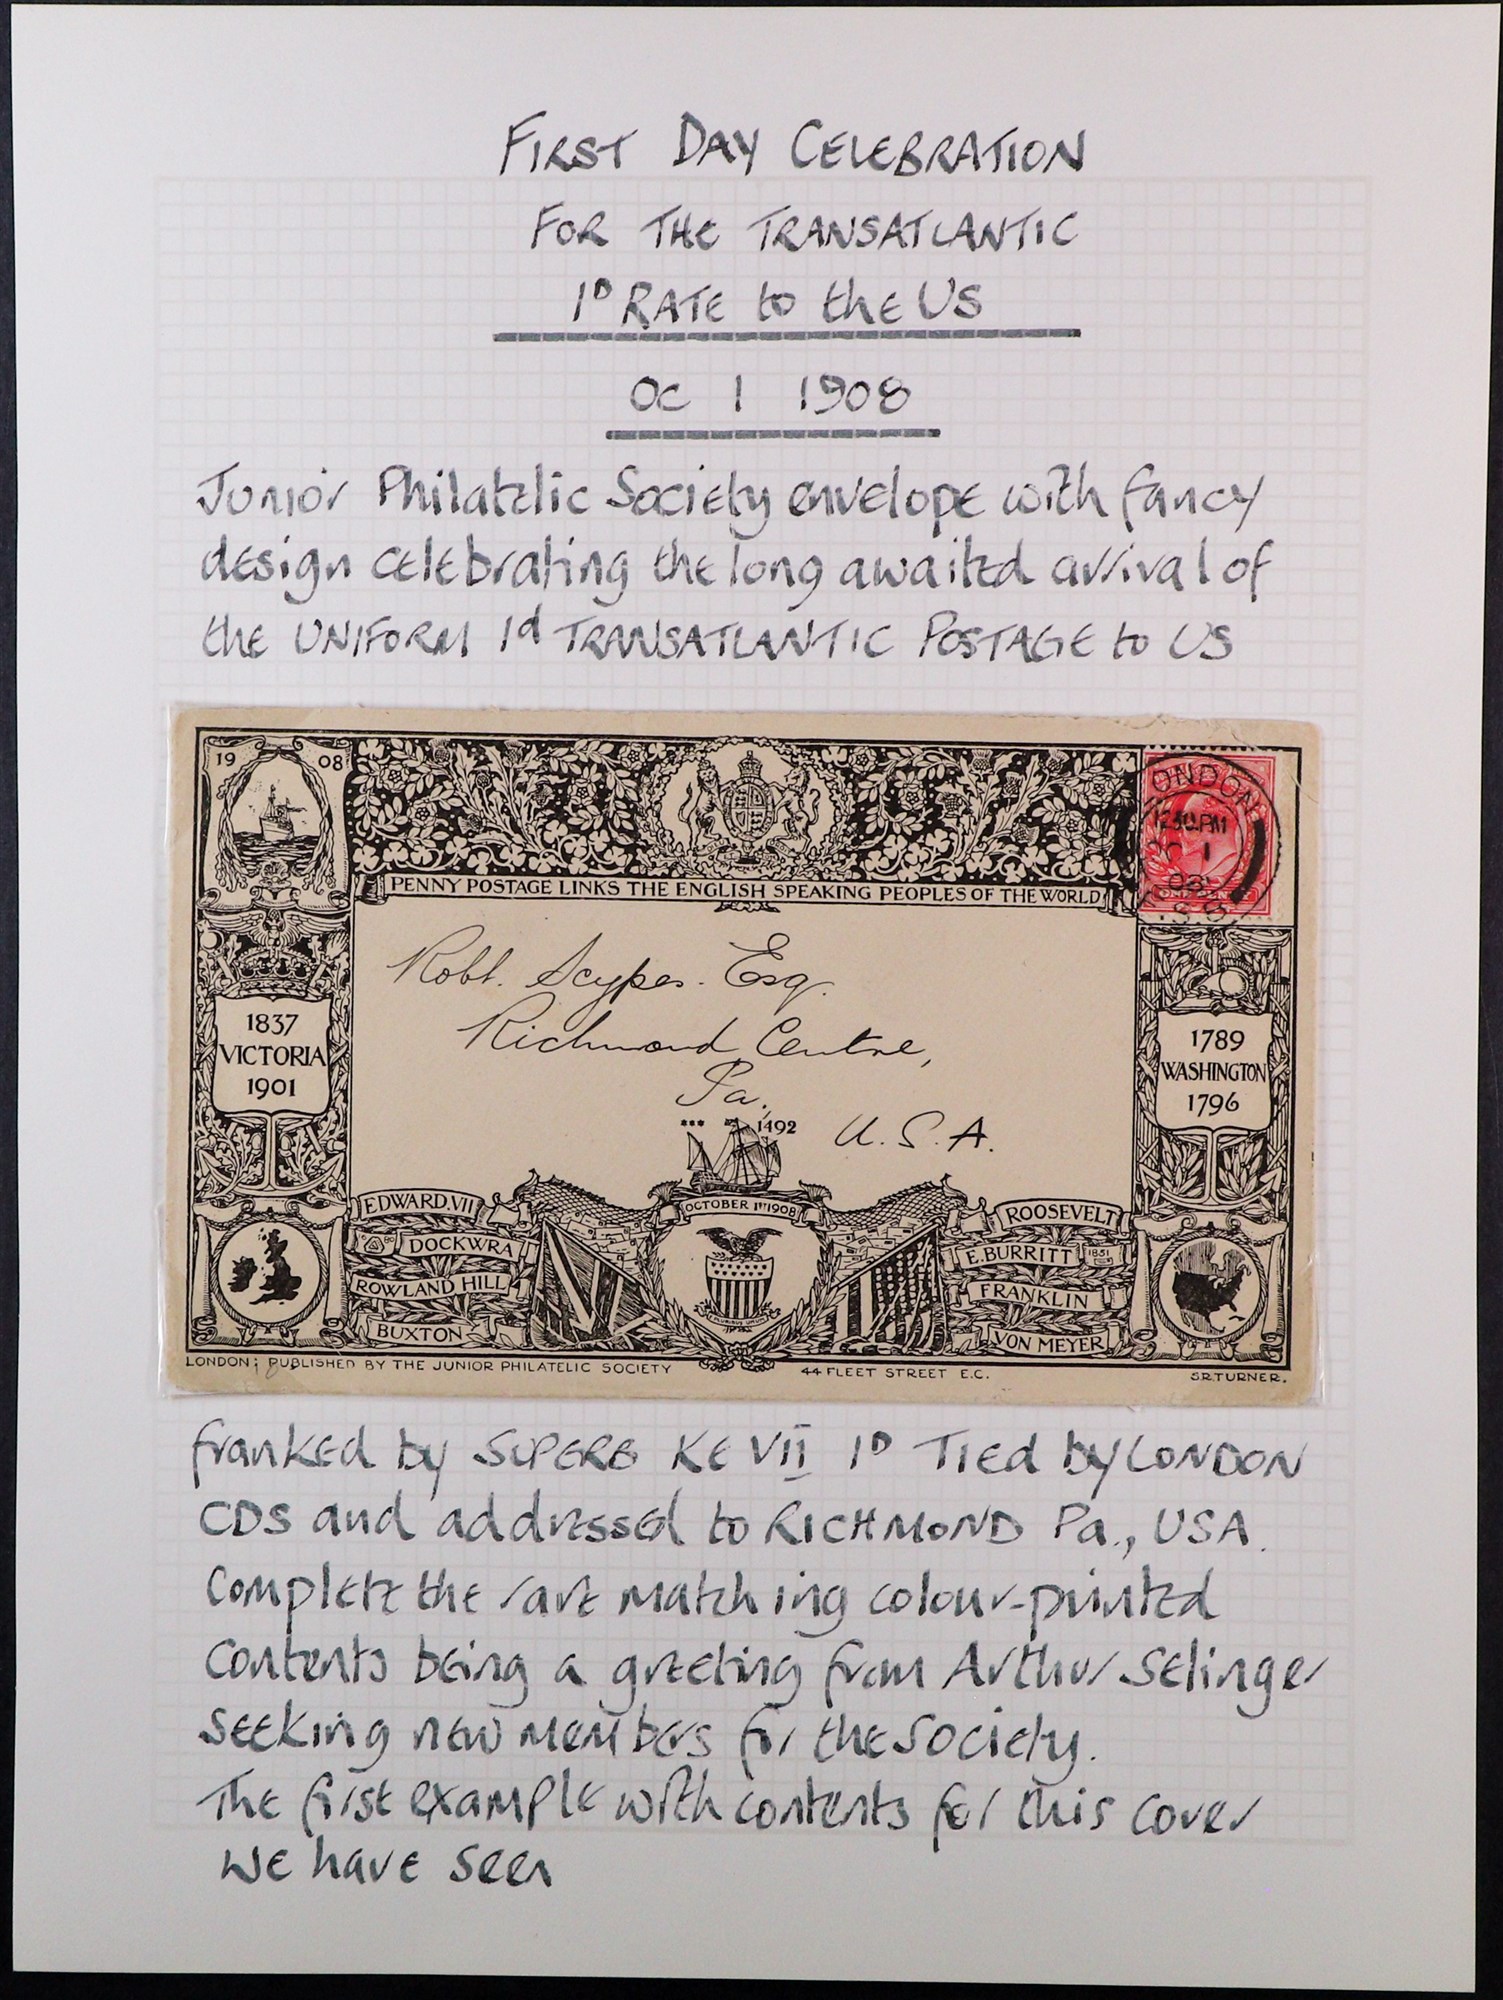 FIRST DAY CELEBRATION
FOR THE TRANSATLANTIC
1D RATE to the US
OC 1 1908
Junior Philatelic Society envelope with fancy
design celebrating the long awaited arrival of
the UNIFORM 1d TRANSATLANTIC POSTAGE to US
19 08
LONDON
12.30.PM
OC 1
08
S.B.
PENNY POSTAGE LINKS THE ENGLISH SPEAKING PEOPLES OF THE WORLD
Robt. Esq.
Richmond Centre,
Pa.
U.S.A.
1837
VICTORIA
1901
1789
WASHINGTON
1796
*** 1492
OCTOBER 1st 1908
EDWARD.VII
DOCKWRA
ROWLAND HILL
BUXTON
ROOSEVELT
E.BURRITT 1851
FRANKLIN
VON MEYER
E PLURIBUS UNUM
LONDON; PUBLISHED BY THE JUNIOR PHILATELIC SOCIETY 44 FLEET STREET E.C. S.R.TURNER.
franked by SUPERB KE VII 1D TIED by LONDON
CDS and addressed to RICHMOND Pa., USA.
Complete the rare matching colour-printed
Contents being a greeting from Arthur Selinger
seeking new members for the society.
The first example with contents for this cover
we have seen